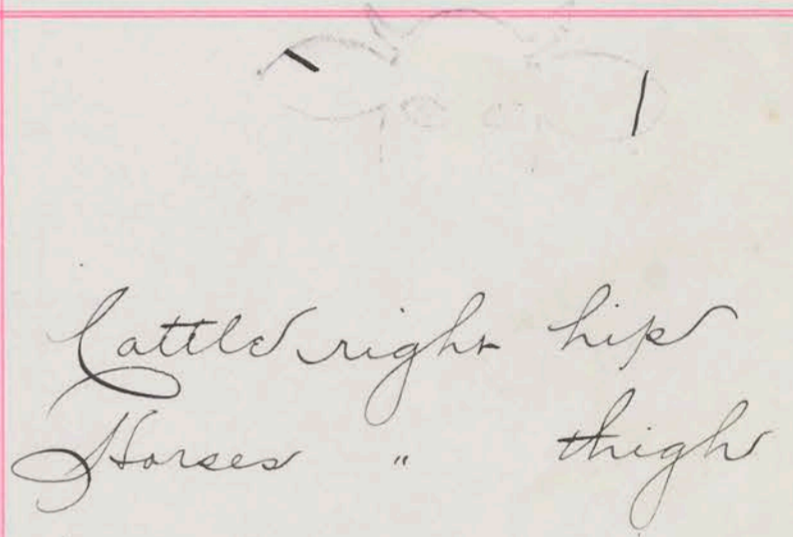 Cattle right hip
Horses " thigh